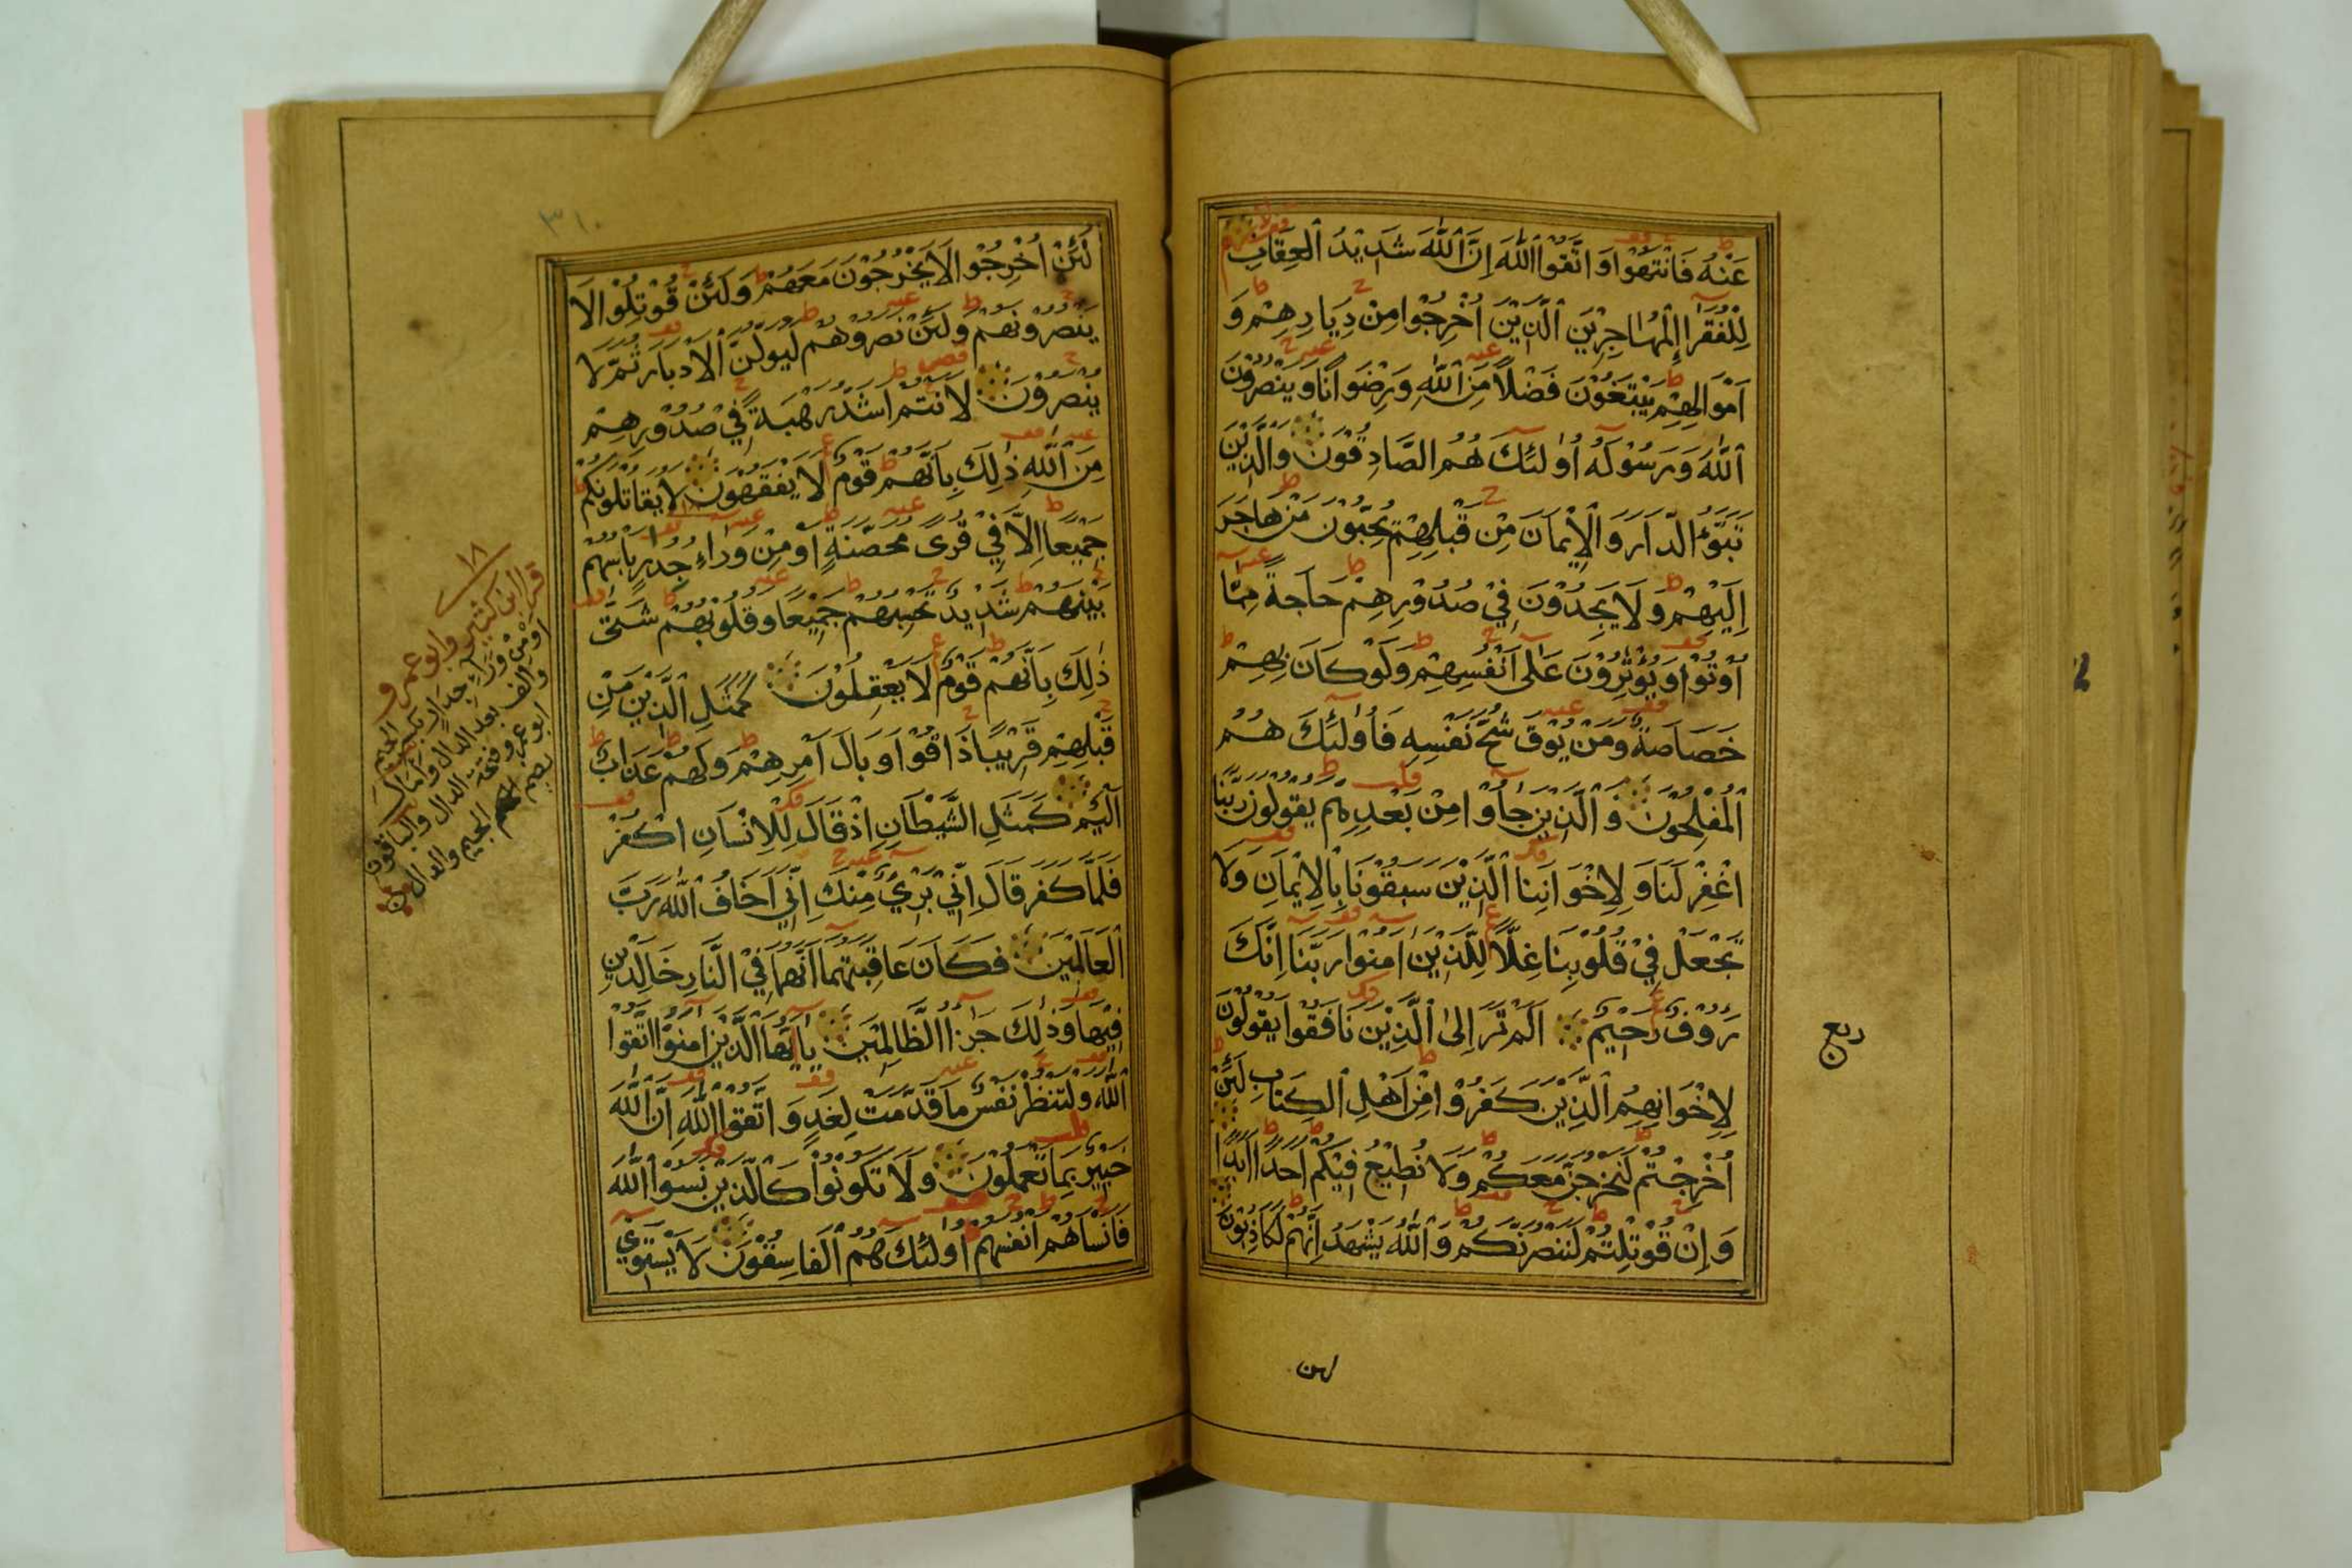 عَنْهُ فَانْتَهُوْا وَاتَّقُوا اللّٰهَ اِنَّ اللّٰهَ شَدِيْدُ الْعِقَابِ
لِلْفُقَرَاءِ الْمُهَاجِرِيْنَ الَّذِيْنَ اُخْرِجُوْا مِنْ دِيَارِهِمْ وَ
اَمْوَالِهِمْ يَبْتَغُوْنَ فَضْلًا مِنَ اللّٰهِ وَرِضْوَانًا وَيَنْصُرُوْنَ
اللّٰهَ وَرَسُوْلَهُ اُولٰئِكَ هُمُ الصَّادِقُوْنَ وَالَّذِيْنَ
تَبَوَّءُ الدَّارَ وَالْاِيْمَانَ مِنْ قَبْلِهِمْ يُحِبُّوْنَ مَنْ هَاجَرَ
اِلَيْهِمْ وَلَا يَجِدُوْنَ فِيْ صُدُوْرِهِمْ حَاجَةً مِمَّا
اُوْتُوْا وَيُؤْثِرُوْنَ عَلٰى اَنْفُسِهِمْ وَلَوْ كَانَ بِهِمْ
خَصَاصَةٌ وَمَنْ يُوْقَ شُحَّ نَفْسِهِ فَاُولٰئِكَ هُمُ
الْمُفْلِحُوْنَ وَالَّذِيْنَ جَاؤُا مِنْ بَعْدِهِمْ يَقُوْلُوْنَ رَبَّنَا
اغْفِرْ لَنَا وَلِاِخْوَانِنَا الَّذِيْنَ سَبَقُوْنَا بِالْاِيْمَانِ وَلَا
تَجْعَلْ فِيْ قُلُوْبِنَا غِلًّا لِلَّذِيْنَ اٰمَنُوْا رَبَّنَا اِنَّكَ
رَؤُفٌ رَحِيْمٌ اَلَمْ تَرَ اِلَى الَّذِيْنَ نَافَقُوْا يَقُوْلُوْنَ
لِاِخْوَانِهِمُ الَّذِيْنَ كَفَرُوْا مِنْ اَهْلِ الْكِتَابِ لَئِنْ
اُخْرِجْتُمْ لَنَخْرُجَنَّ مَعَكُمْ وَلَا نُطِيْعُ فِيْكُمْ اَحَدًا اَبَدًا
وَاِنْ قُوْتِلْتُمْ لَنَنْصُرَنَّكُمْ وَاللّٰهُ يَشْهَدُ اِنَّهُمْ لَكَاذِبُوْنَ
ربع
لهن
٣١٠
لَئِنْ اُخْرِجُوْا لَا يَخْرُجُوْنَ مَعَهُمْ وَلَئِنْ قُوْتِلُوْا لَا
يَنْصُرُوْنَهُمْ وَلَئِنْ نَصَرُوْهُمْ لَيُوَلُّنَّ الْاَدْبَارَ ثُمَّ لَا
يُنْصَرُوْنَ لَاَنْتُمْ اَشَدُّ رَهْبَةً فِيْ صُدُوْرِهِمْ
مِنَ اللّٰهِ ذٰلِكَ بِاَنَّهُمْ قَوْمٌ لَا يَفْقَهُوْنَ لَا يُقَاتِلُوْنَكُمْ
جَمِيْعًا اِلَّا فِيْ قُرًى مُحَصَّنَةٍ اَوْ مِنْ وَرَاءِ جُدُرٍ بَاْسُهُمْ
بَيْنَهُمْ شَدِيْدٌ تَحْسَبُهُمْ جَمِيْعًا وَقُلُوْبُهُمْ شَتّٰى
ذٰلِكَ بِاَنَّهُمْ قَوْمٌ لَا يَعْقِلُوْنَ كَمَثَلِ الَّذِيْنَ مِنْ
قَبْلِهِمْ قَرِيْبًا ذَاقُوْا وَبَالَ اَمْرِهِمْ وَلَهُمْ عَذَابٌ
اَلِيْمٌ كَمَثَلِ الشَّيْطَانِ اِذْ قَالَ لِلْاِنْسَانِ اكْفُرْ
فَلَمَّا كَفَرَ قَالَ اِنِّيْ بَرِيْءٌ مِنْكَ اِنِّيْ اَخَافُ اللّٰهَ رَبَّ
الْعَالَمِيْنَ فَكَانَ عَاقِبَتَهُمَا اَنَّهُمَا فِي النَّارِ خَالِدَيْنِ
فِيْهَا وَذٰلِكَ جَزَاءُ الظَّالِمِيْنَ يَا اَيُّهَا الَّذِيْنَ اٰمَنُوا اتَّقُوا
اللّٰهَ وَلْتَنْظُرْ نَفْسٌ مَا قَدَّمَتْ لِغَدٍ وَاتَّقُوا اللّٰهَ اِنَّ اللّٰهَ
خَبِيْرٌ بِمَا تَعْمَلُوْنَ وَلَا تَكُوْنُوْا كَالَّذِيْنَ نَسُوا اللّٰهَ
فَاَنْسَاهُمْ اَنْفُسَهُمْ اُولٰئِكَ هُمُ الْفَاسِقُوْنَ لَا يَسْتَوِيْ
١٨
قرا ابن كثير وابو عمرو
او من وراء جدار بكسر الجيم
والف بعد الدال وامال
ابو عمرو فتحة الدال والباقون
بضم الجيم والدال